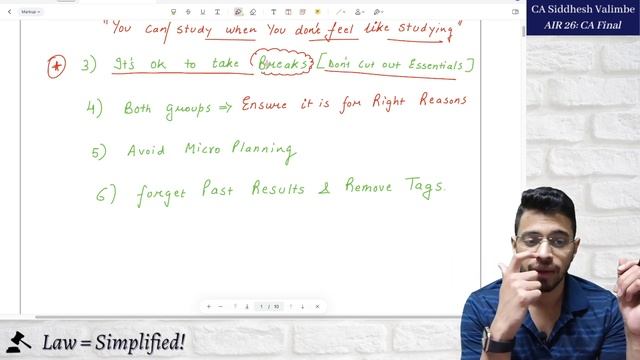 CA Siddhesh Valimbe
AIR 26: CA Final
Markup
"You can study when You don't feel like studying"
3) It's ok to take Breaks [Don't cut out Essentials]
4) Both groups ⇒ Ensure it is for Right Reasons
5) Avoid Micro Planning
6) forget Past Results & Remove Tags.
1 / 10
Law = Simplified!